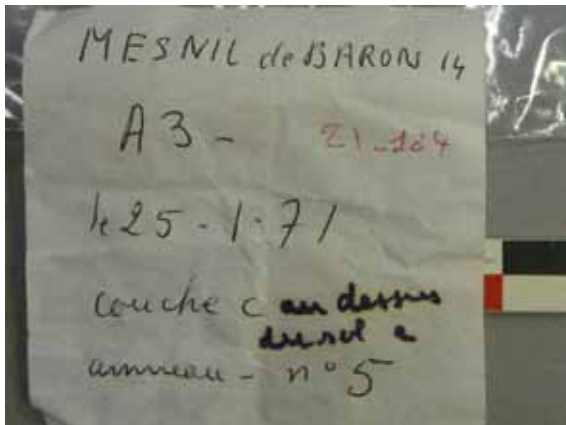 MESNIL de BARON 14
A3 - 21-104
le 25-1-71
couche c au dessus
du sol e
anneau - n° 5